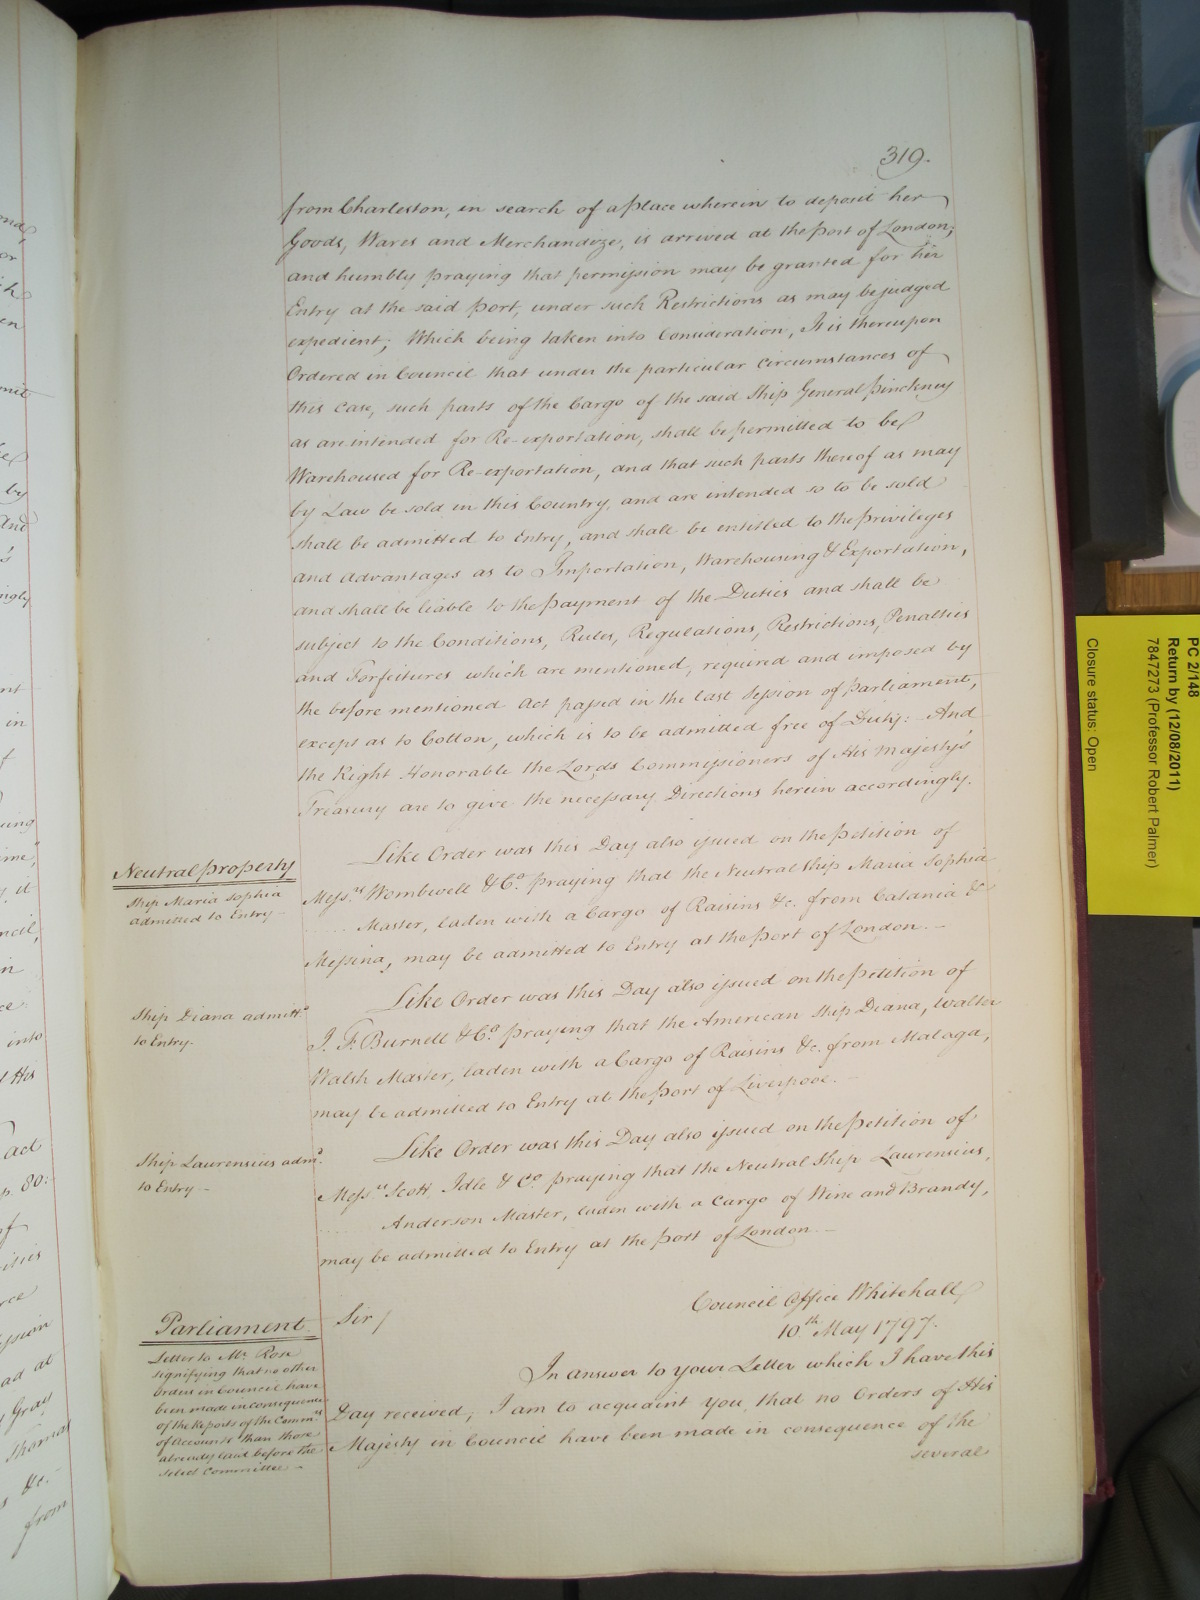 319.
from Charleston, in search of a place wherein to deposit her
Goods, Wares and Merchandize, is arrived at the Port of London;
and humbly praying that permission may be granted for her
Entry at the said Port, under such Restrictions as may be judged
expedient; Which being taken into Consideration, It is thereupon
Ordered in Council that under the particular Circumstances of
this Case, such parts of the Cargo of the said Ship General Pinckney
as are intended for Re-exportation, shall be permitted to be
Warehoused for Re-exportation, and that such parts thereof as may
by Law be sold in this Country, and are intended so to be sold
shall be admitted to Entry, and shall be entitled to the Privileges
and Advantages as to Importation, Warehousing & Exportation,
and shall be liable to the payment of the Duties and shall be
subject to the Conditions, Rules, Regulations, Restrictions, Penalties
and Forfeitures which are mentioned, required and imposed by
the before mentioned Act passed in the last Session of Parliament,
except as to Cotton, which is to be admitted free of Duty:- And
the Right Honorable the Lords Commissioners of His Majesty's
Treasury are to give the necessary Directions herein accordingly.
Neutral property
Ship Maria Sophia
admitted to Entry -
Like Order was this Day also issued on the Petition of
Messrs Wombwell & Co praying that the Neutral Ship Maria Sophia
Master, laden with a Cargo of Raisins &c. from Catania &
Messina, may be admitted to Entry at the Port of London. -
Ship Diana admittd
to Entry.
Like Order was this Day also issued on the Petition of
J. F. Burnell & Co praying that the American Ship Diana, Walter
Walsh Master, laden with a Cargo of Raisins &c. from Malaga,
may be admitted to Entry at the Port of Liverpool. -
Ship Laurensius admd
to Entry -
Like Order was this Day also issued on the Petition of
Messrs Scott, Idle & Co praying that the Neutral Ship Laurensius,
Anderson Master, laden with a Cargo of Wine and Brandy,
may be admitted to Entry at the Port of London. -
Council Office Whitehall
10th May 1797.
Parliament
Letter to Mr Rose
signifying that no other
Orders in Council have
been made in consequence
of the Reports of the Commrs
of Accounts than those
already laid before the
select Committee -
Sir/
In answer to your Letter which I have this
Day received, I am to acquaint you, that no Orders of His
Majesty in Council have been made in consequence of the
several
PC 2/148
Return by (12/08/2011)
7847273 (Professor Robert Palmer)
Closure status: Open